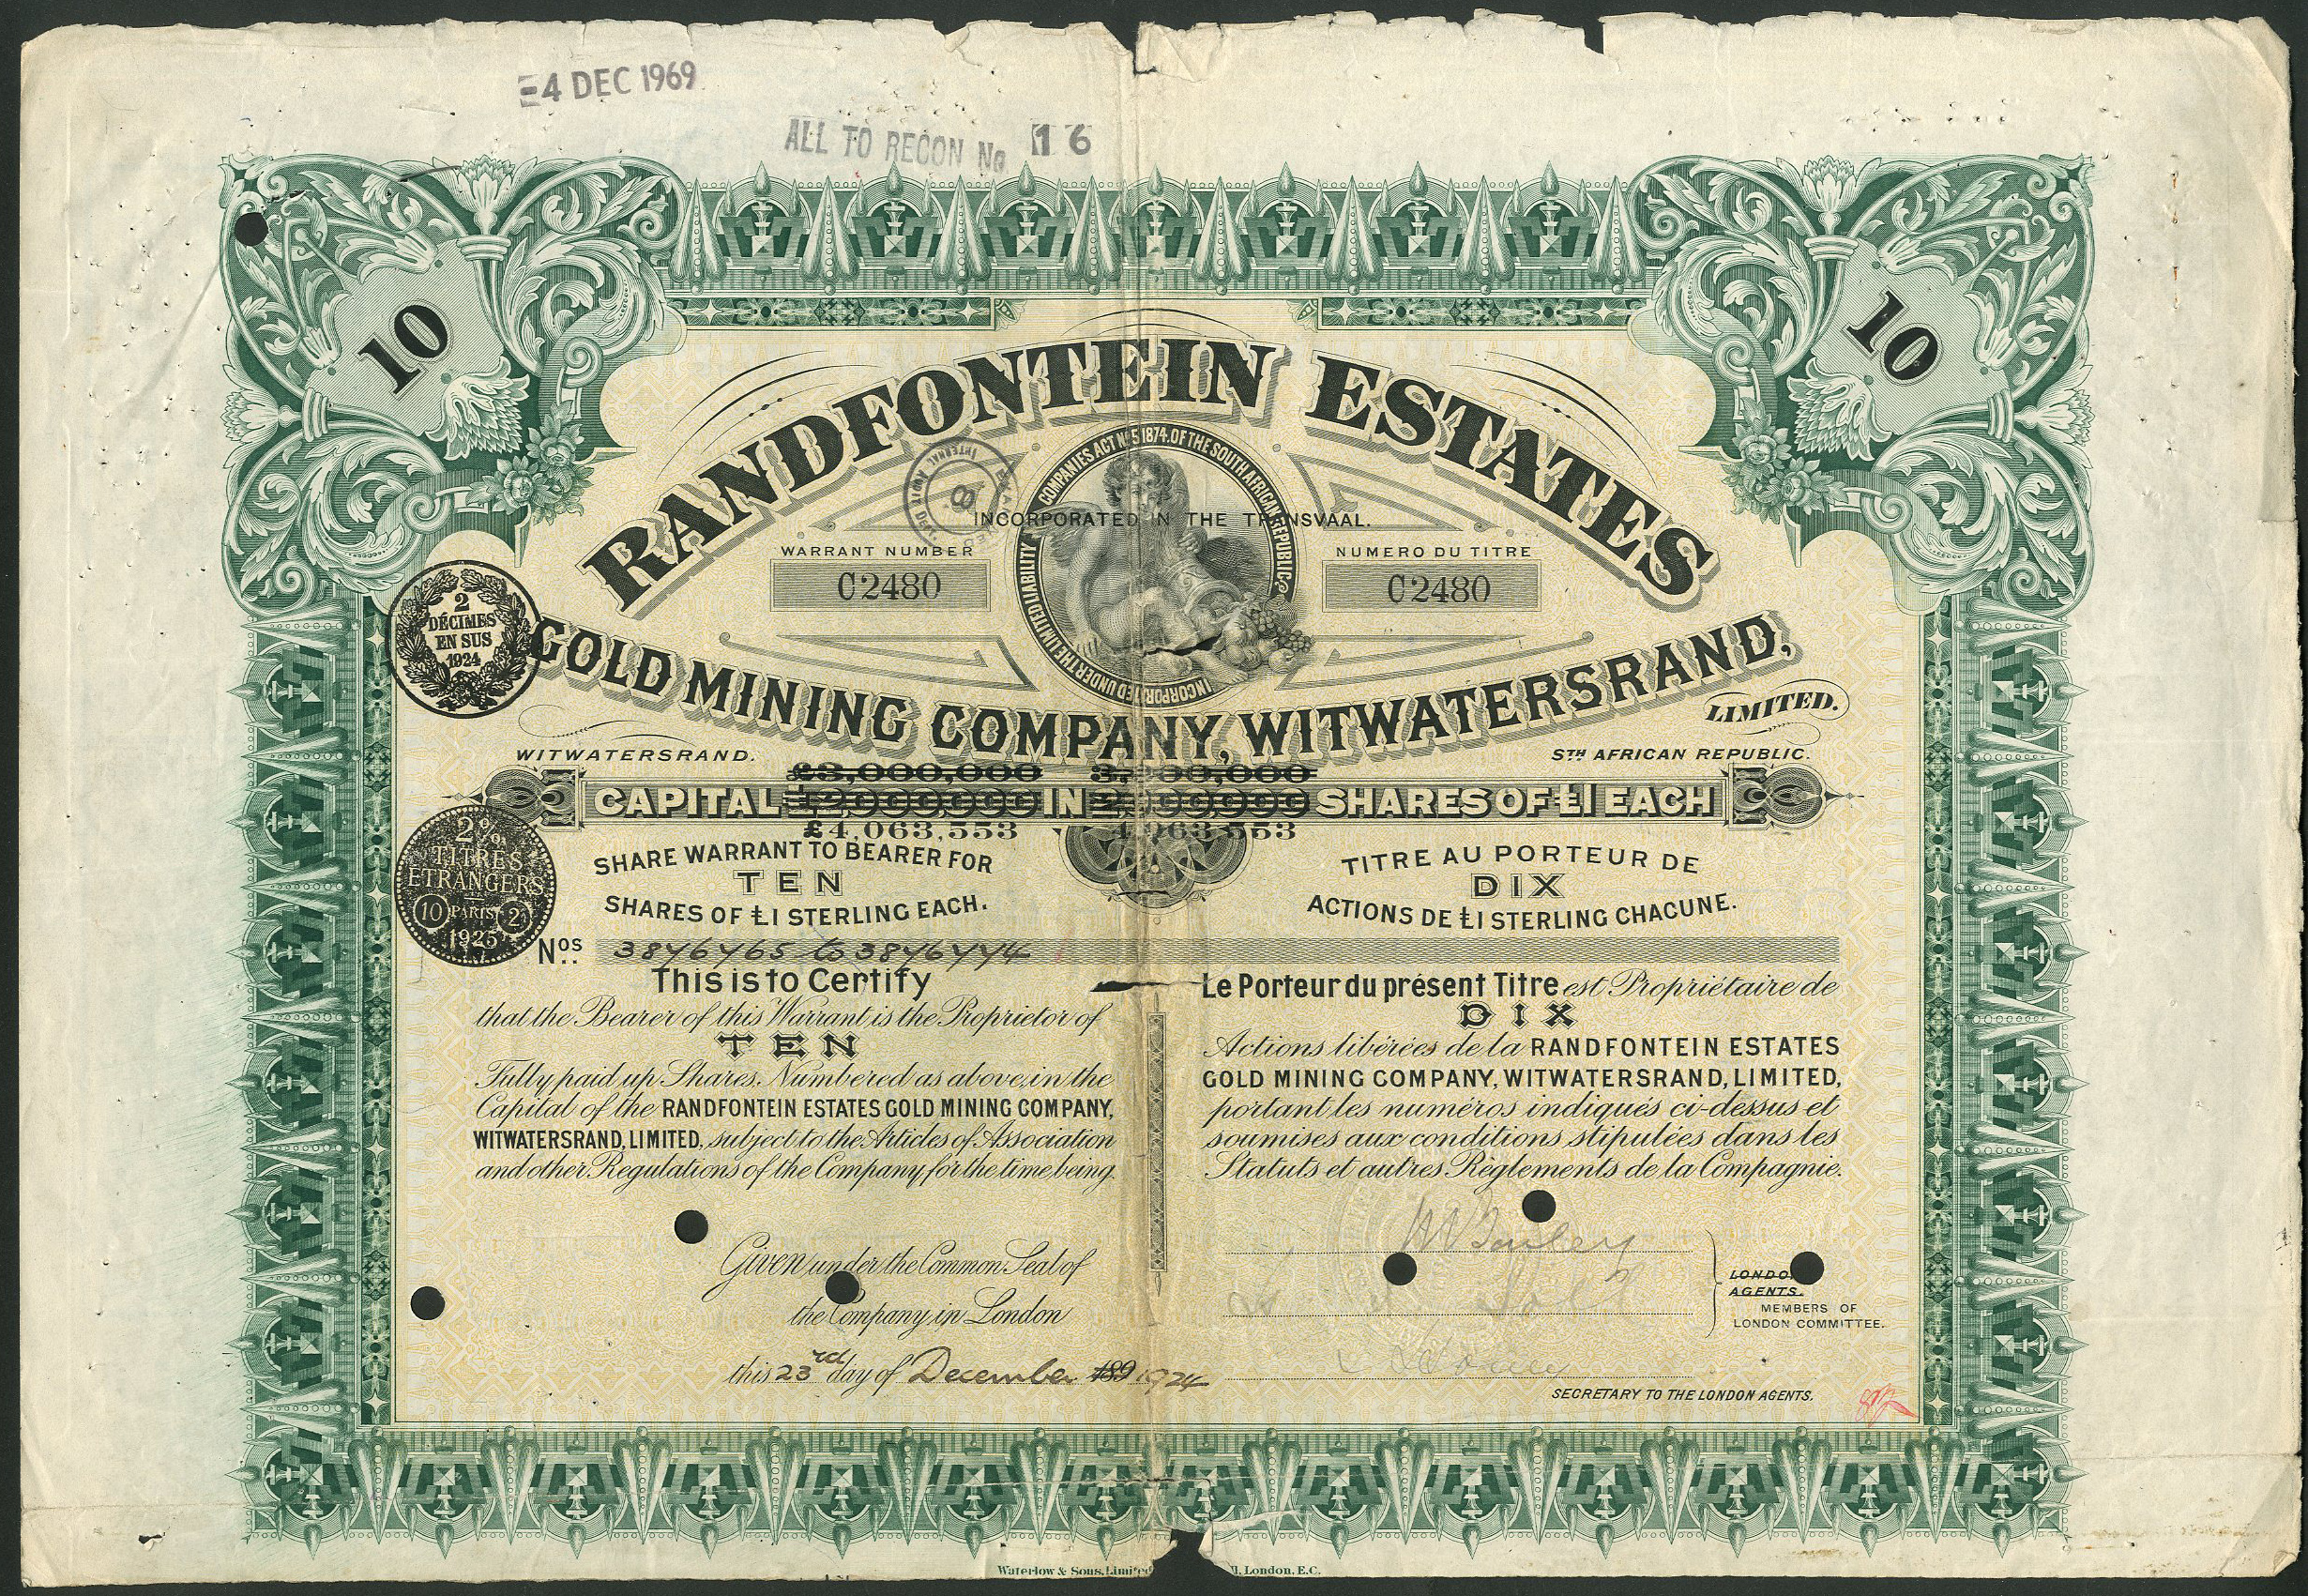 4 DEC 1969
ALL TO RECON No 16
10
10
RANDFONTEIN ESTATES
COMPANIES ACT No 5 1874. OF THE SOUTH AFRICAN REPUBLIC
INCORPORATED UNDER THE LIMITED LIABILITY
INTERNAL
8
INCORPORATED IN THE TRANSVAAL.
WARRANT NUMBER
C2480
NUMERO DU TITRE
C2480
2
DÉCIMES
EN SUS
1924
GOLD MINING COMPANY, WITWATERSRAND,
LIMITED.
WITWATERSRAND.
STH AFRICAN REPUBLIC.
£3,000,000 3,200,000
CAPITAL £2000000 IN SHARES OF £1 EACH
£4,063,553 4,063,553
2%
TITRES
ETRANGERS
10 PARIS 2
1925
SHARE WARRANT TO BEARER FOR
TEN
SHARES OF £1 STERLING EACH.
TITRE AU PORTEUR DE
DIX
ACTIONS DE £1 STERLING CHACUNE.
Nos. 3876765 to 3876774
This is to Certify
that the Bearer of this Warrant is the Proprietor of
TEN
Fully paid up Shares, Numbered as above, in the
Capital of the RANDFONTEIN ESTATES GOLD MINING COMPANY,
WITWATERSRAND, LIMITED, subject to the Articles of Association
and other Regulations of the Company for the time being.
Le Porteur du présent Titre est Propriétaire de
DIX
Actions libérées de la RANDFONTEIN ESTATES
GOLD MINING COMPANY, WITWATERSRAND, LIMITED,
portant les numéros indiqués ci-dessus et
soumises aux conditions stipulées dans les
Statuts et autres Règlements de la Compagnie.
Given under the Common Seal of
the Company in London
this 23rd day of December 189 1924
LONDO
AGENTS.
MEMBERS OF
LONDON COMMITTEE.
SECRETARY TO THE LONDON AGENTS.
Waterlow & Sons, Limited London, E.C.